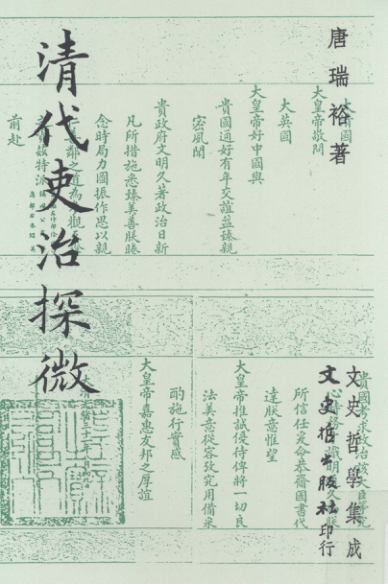 唐瑞裕著
清代吏治探微
文史哲學集成
文史哲出版社印行
大皇帝敬問
大英國
大皇帝好中國與
貴國通好有年交誼益臻親
密風聞
貴政府文明久著政治日新
凡所措施悉臻美善朕睠
念時局力圖振作思以親
前赴
所信任爰命恭齎國書代
達朕意惟望
大皇帝推誠優待俾將一切良
法美意從容攷究用備采
酌施行實感
大皇帝嘉惠友邦之厚誼